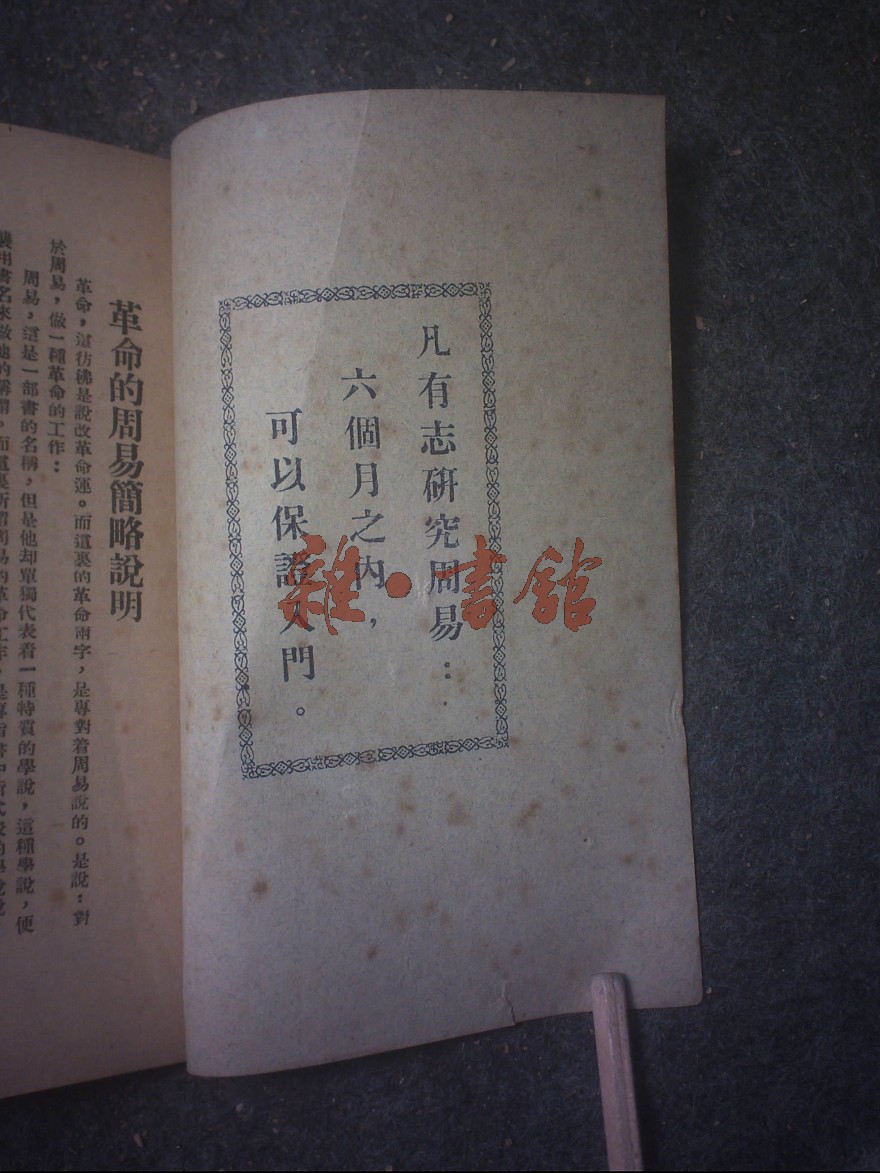 凡有志研究周易：
六個月之內，
可以保證入門。
雜·書館
革命的周易簡略說明
革命，這彷彿是說改革命運。而這裏的革命兩字，是專對着周易說的。是說：對
於周易，做一種革命的工作：
周易，這是一部書的名稱，但是他却單獨代表着一種特質的學說，這種學說，便